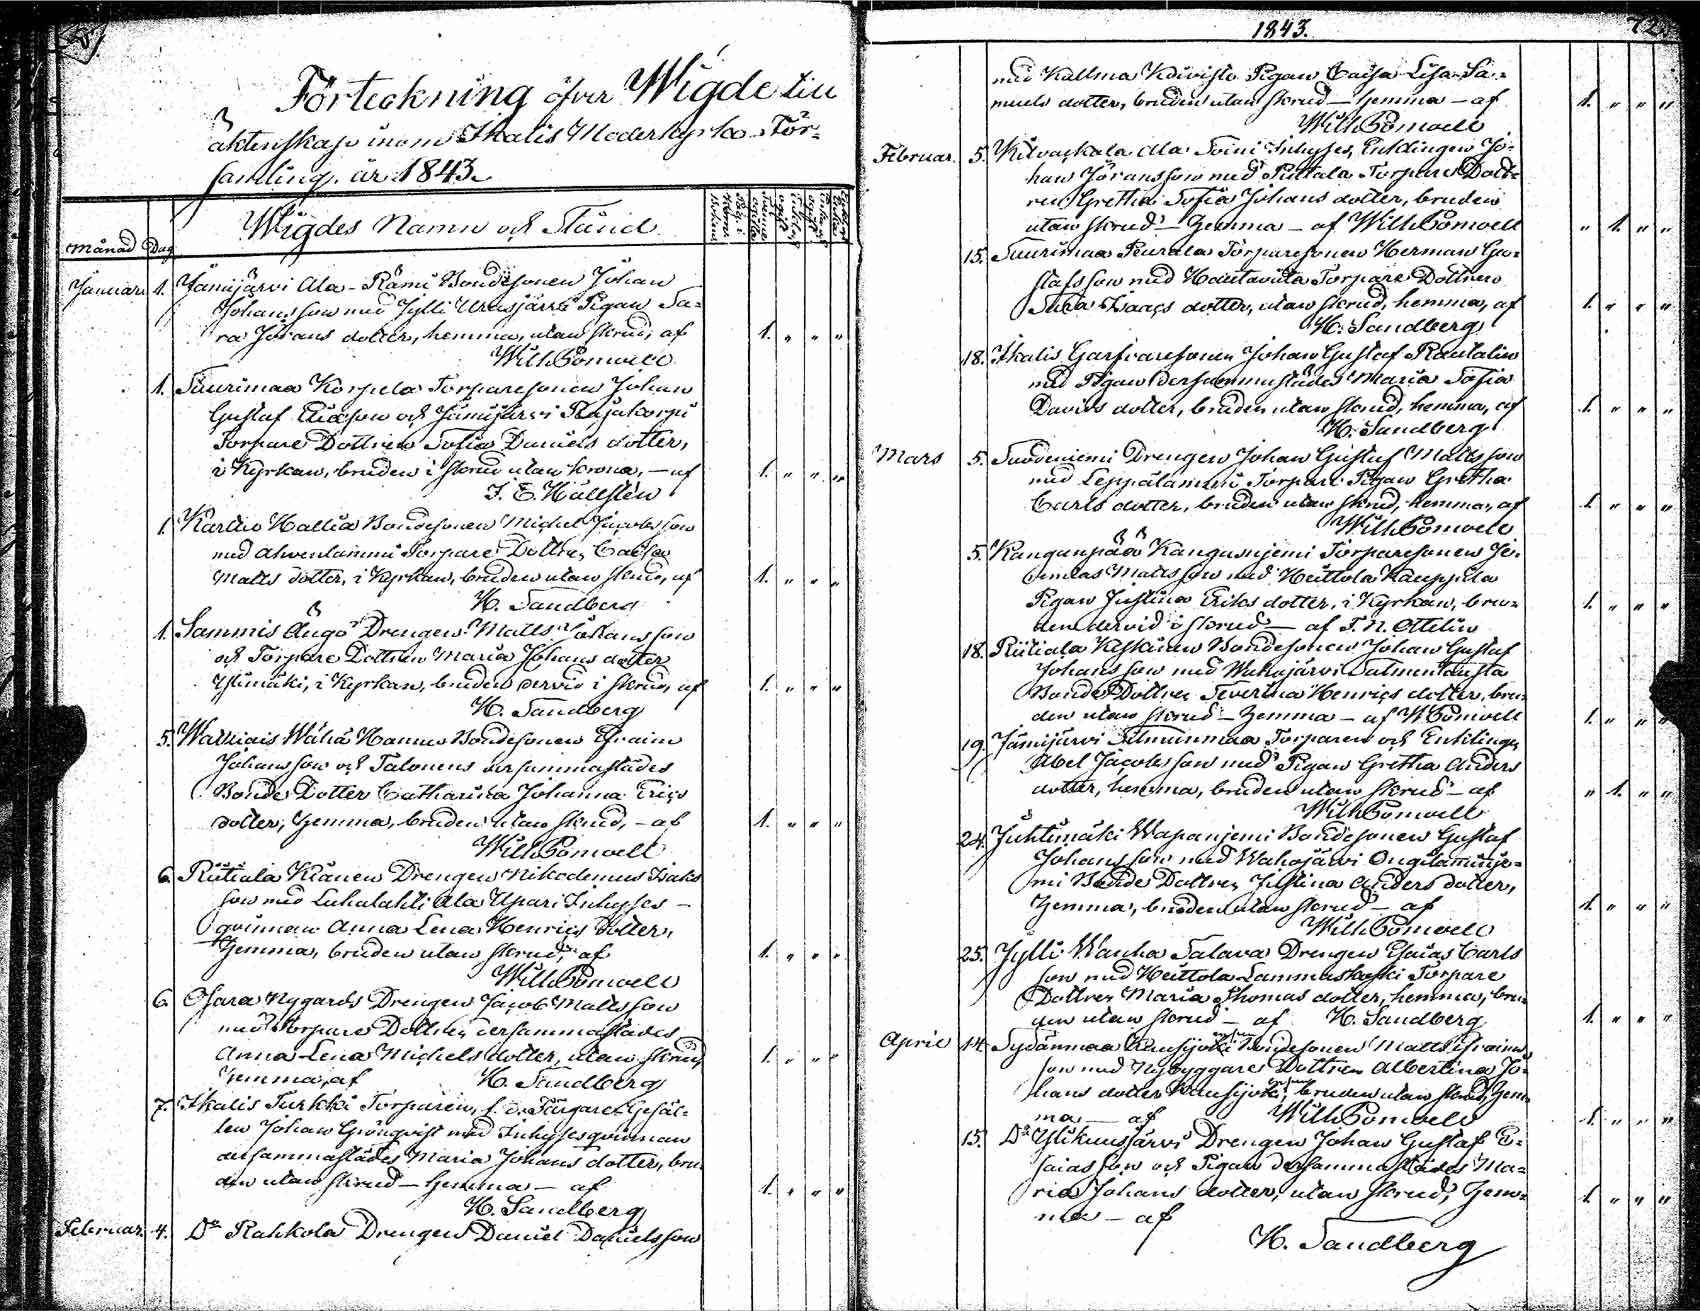 Förteckning öfver Wigde till
äktenskap inom Ikalis Moderkyrko För-
samling år 1843.
Månad Dag Wigdes Namn och Stånd
Januari 1. Jämijärvi Ala-Rämi Bondesonen Johan
Johansson med Jylli Urasjärvi Pigan Sa-
ra Jörans dotter, hemma, utan skrud, af 1. " " "
Wilh Pomoell
1. Tuurimaa Korpula Torparesonen Johan
Gustaf Ericsson och Jämijärvi Rajakorpi
Torpare Dottren Sofia Daniels dotter,
i Kyrkan, bruden i skrud utan krona, — af 1. " " "
F. E. Hällsten
1. Kartu Hallia Bondesonen Michel Jacobsson
med Ahvenlammi Torpare Dottren Caisa
Matts dotter, i Kyrkan, bruden utan skrud, af 1. " " "
H. Sandberg
1. Sammis Ängö Drengen Matts Johansson
och Torpare Dottren Maria Johans dotter
Ylimäki, i Kyrkan, bruden dervid i skrud, af 1. " " "
H. Sandberg
5. Wähä Hannu Bondesonen Efraim
Johansson och Talonens dersammastädes
Bonde Dotter Catharina Johanna Erics
dotter, hemma, bruden utan skrud, — af 1. " " "
Wilh Pomoell
6. Riitiala Kiänen Drengen Nikodemus Isaks
son med Luhalahti Ala Upari Inhyses-
qvinnan Anna Lena Henrics dotter,
hemma, bruden utan skrud, af 1. " " "
Wilh Pomoell
6. Osara Nygårds Drengen Jacob Mattsson
med Torpare Dottren dersammastädes
Anna Lena Michels dotter, utan skrud,
hemma, af H. Sandberg 1. " " "
7. Ikalis Turkki Torparen, f. d. Färgare Gesäl-
len Johan Grönqvist med Inhysesqvinnan
dersammastädes Maria Johans dotter, bru-
den utan skrud — hemma — af 1. " " "
H. Sandberg
Februar. 4. Do Rahkola Drengen Daniel Danielsson
1843. 72.
med Kallma Pigan Caisa Lisa Sa-
muels dotter, bruden utan skrud — hemma — af 1. " " "
Wilh Pomoell
Februar. 5. Kilvackala Ala Toini Inhyses, Enklingen Jo-
han Jöransson med Torpare Dott-
ren Gretha Sofia Johans dotter, bruden
utan skrud — hemma — af Wilh Pomoell " 1. " "
15. Tuurimaa Peurala Torparesonen Herman Gu-
stafsson med Hautaviita Torpare Dottren
Isaacs dotter, utan skrud, hemma, af 1. " " "
H. Sandberg
18. Ikalis Garfvaresonen Johan Gustaf Rautalin
med Pigan dersammastädes Maria Sofia
Davids dotter, bruden utan skrud, hemma, af 1. " " "
H. Sandberg
Mars 5. Suodeniemi Drengen Johan Gustaf Mattsson
med Leppälammi Torpare Pigan Gretha
Carls dotter, bruden utan skrud, hemma, af 1. " " "
Wilh Pomoell
5. Kangunpää Kangasnjemi Torparesonen Je-
remias Mattsson med Heittola Kauppila
Pigan Justina Eriks dotter, i Kyrkan, bru-
den dervid i skrud — af F. N. Ottelin 1. " " "
18. Riitiala Keskinen Bondesonen Johan Gustaf
Johansson med Wahojärvi Salmentausta
Bonde Dottren Severina Henrics dotter, bru-
den utan skrud — hemma — af W Pomoell 1. " " "
19. Jämijärvi Torparen och Enklingen
Abel Jacobsson med Pigan Gretha Anders
dotter, hemma, bruden utan skrud — af " 1. " "
Wilh Pomoell
24. Juhtimäki Wapanjemi Bondesonen Gustaf
Johansson med Wahojärvi Ongilamminje-
mi Bonde Dottren Justina Anders dotter,
hemma, bruden utan skrud — af 1. " " "
Wilh Pomoell
25. Jylli Wanha Salava Drengen Esaias Carls
son med Heittola Lammuskoski Torpare
Dottren Maria Thomas dotter, hemma, bru-
den utan skrud — af H. Sandberg 1. " " "
April 14. Sydänmaa Kausijoki Bondesonen Matts Efraims
son med Nybyggare Dottren Albertina Jo-
hans dotter Kausijoki, bruden utan skrud, hem-
ma — af Wilh Pomoell 1. " " "
15. Do Ylikuusjärvi Drengen Johan Gustaf E-
saiasson och Pigan dersammastädes Ma-
ria Johans dotter, utan skrud, hem-
ma — af 1. " " "
H. Sandberg